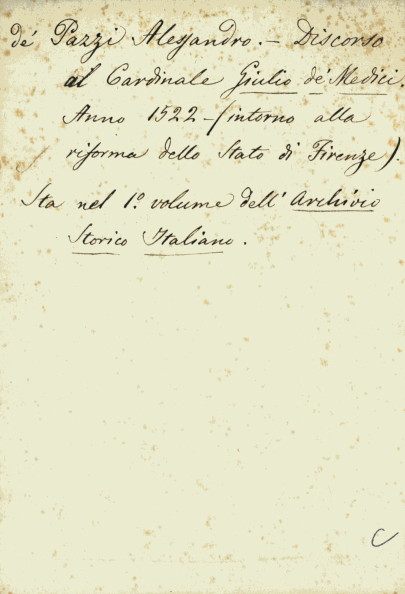 de' Pazzi Alessandro. – Discorso
al Cardinale Giulio de' Medici.
Anno 1522 – (intorno alla
riforma dello Stato di Firenze).
Sta nel 1.º volume dell' Archivio
Storico Italiano.
C